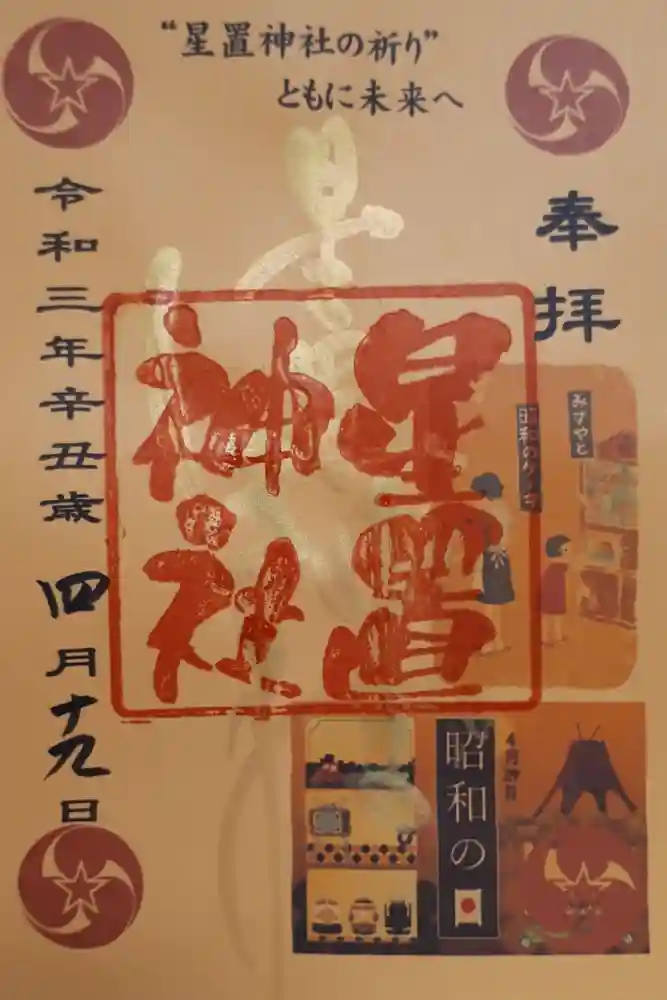 “星置神社の祈り”
ともに未来へ
奉拝
星置
神社
みずやと
4月29日
昭和の日
令和三年辛丑歳 四月十九日